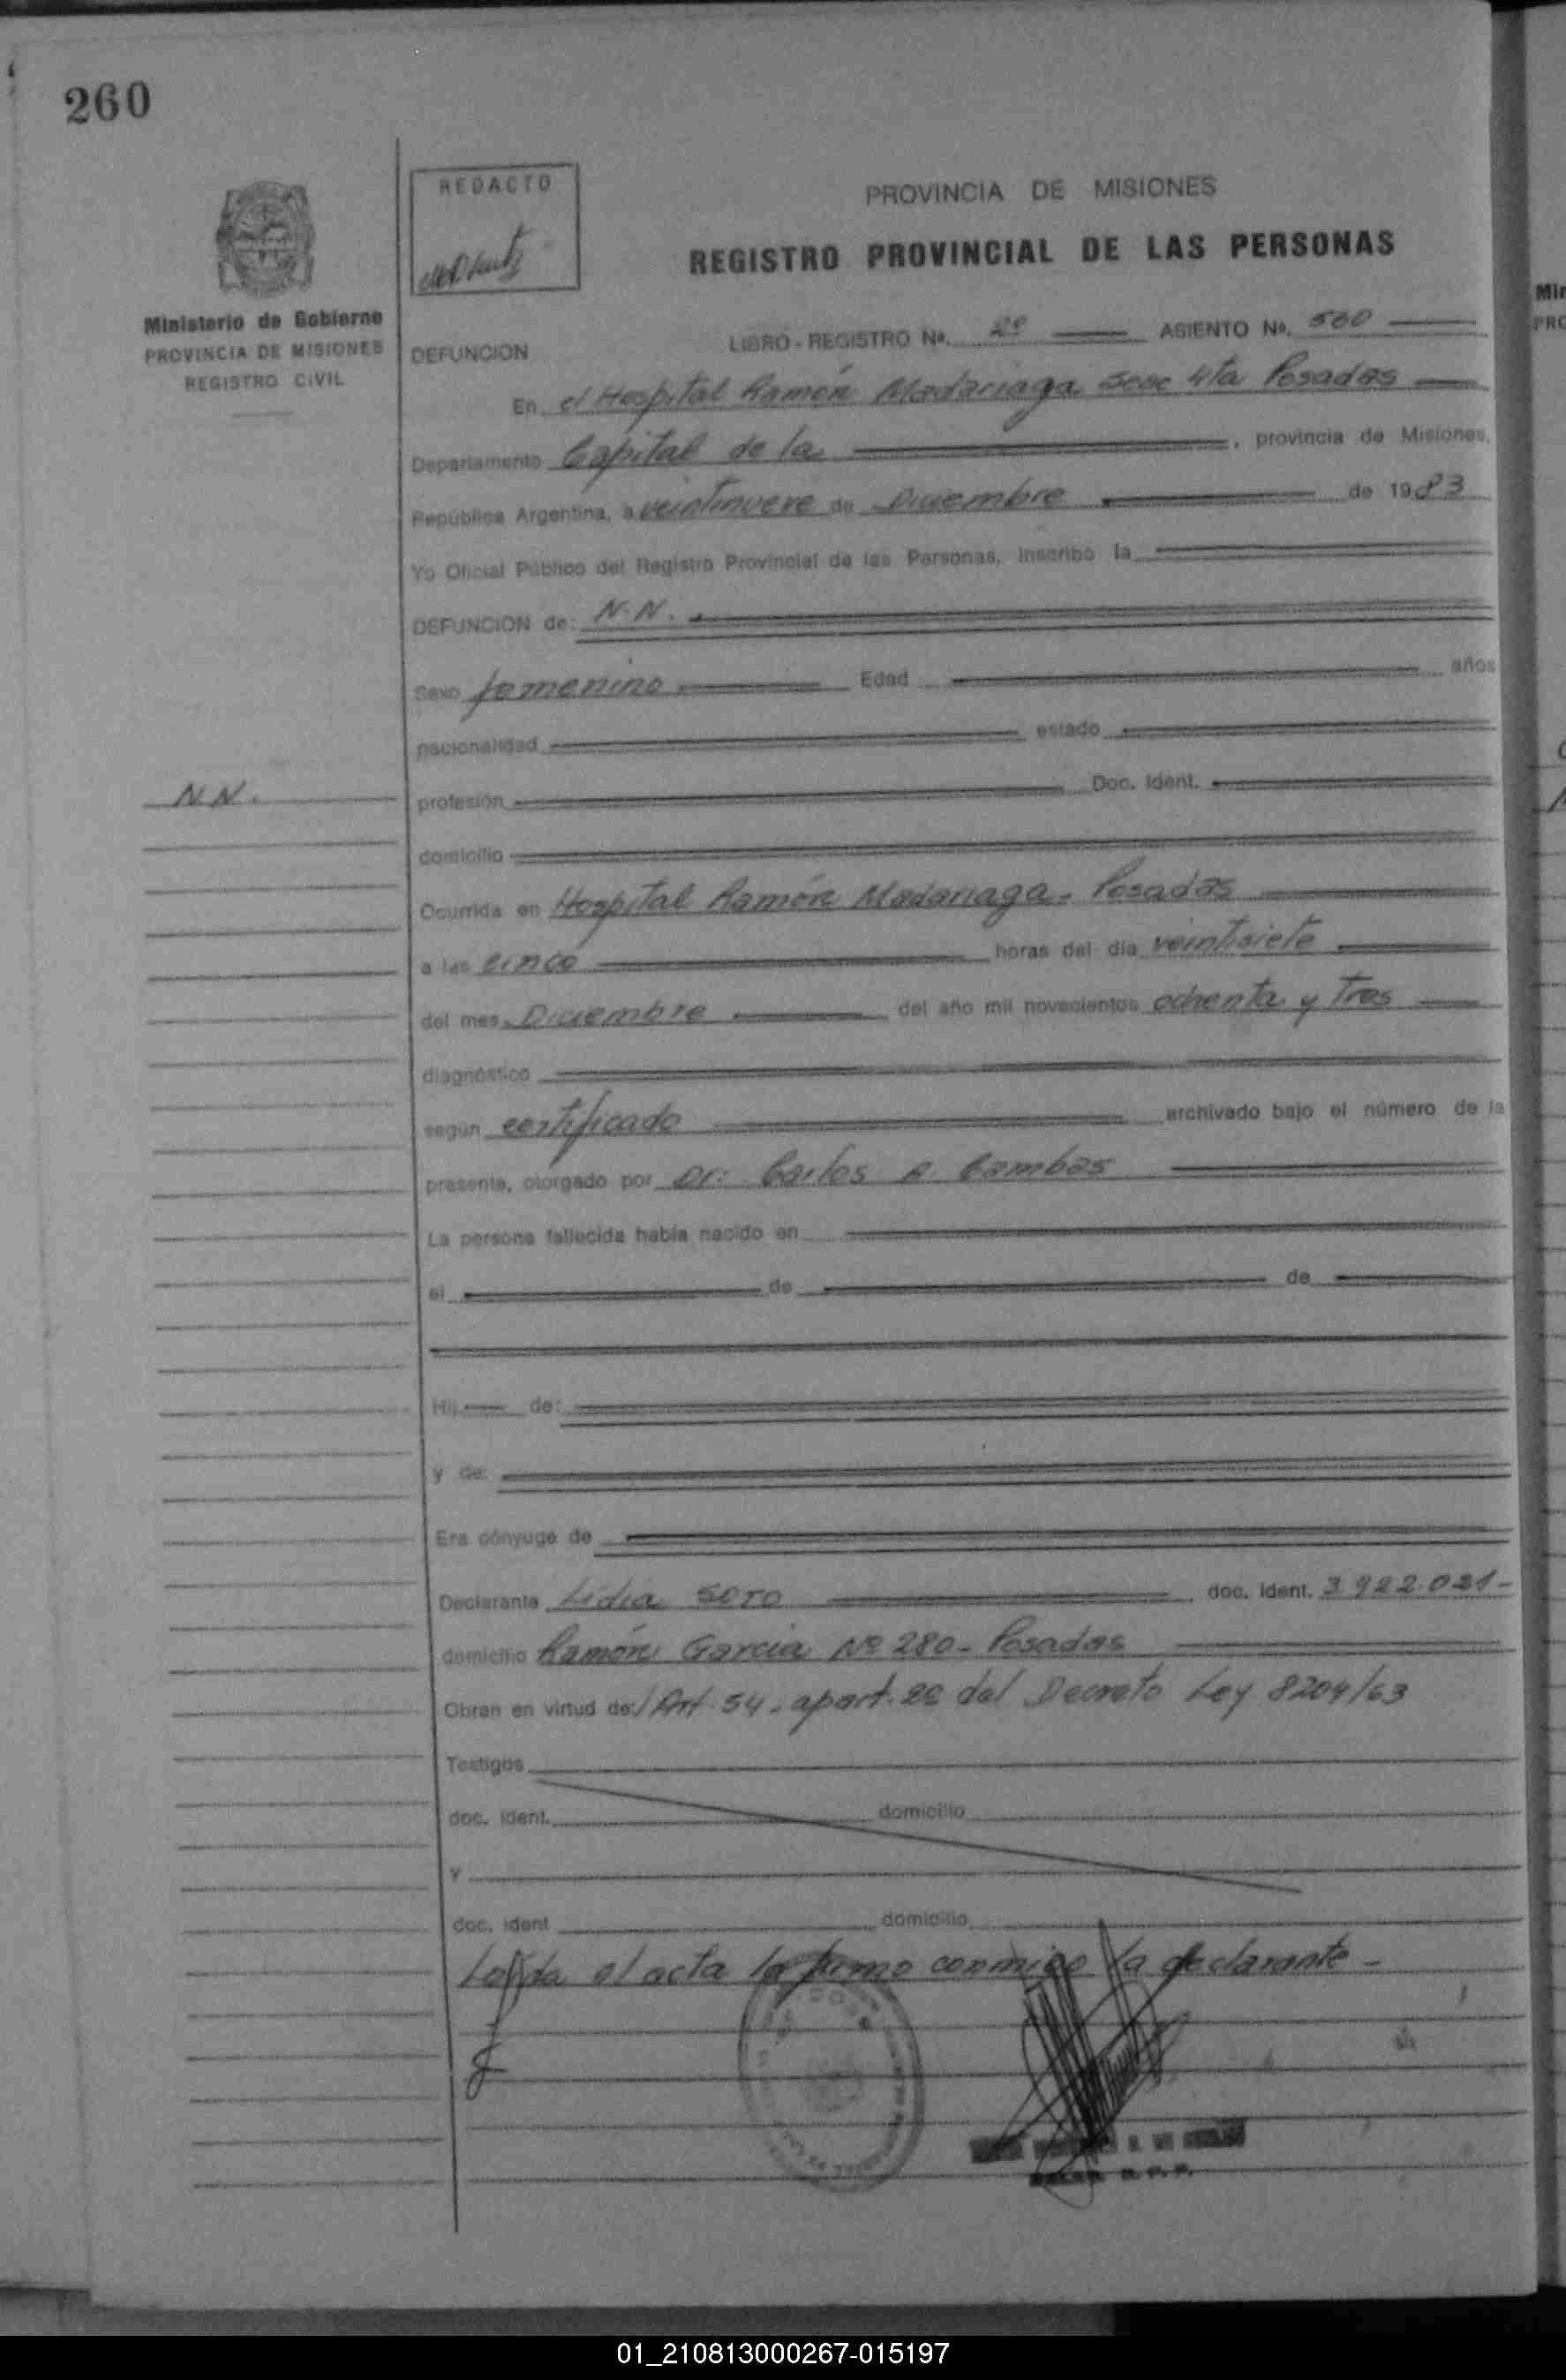 260
REDACTO
PROVINCIA DE MISIONES
REGISTRO PROVINCIAL DE LAS PERSONAS
Ministerio de Gobierno
PROVINCIA DE MISIONES
REGISTRO CIVIL
DEFUNCION
LIBRO - REGISTRO No. 2º ASIENTO No. 560
En el Hospital Ramón Madariaga Secc 4ta Posadas
Departamento Capital de la , provincia de Misiones,
República Argentina, a veintinueve de Diciembre de 1983
Yo Oficial Público del Registro Provincial de las Personas, inscribo la
DEFUNCION de: N.N.
Sexo femenino Edad años
nacionalidad estado
N.N.
profesión Doc. Ident.
domicilio
Ocurrida en Hospital Ramón Madariaga - Posadas
a las cinco horas del día veintisiete
del mes Diciembre del año mil novecientos ochenta y Tres
diagnóstico
según certificado archivado bajo el número de la
presente, otorgado por Dr. Carlos A. Cambas
La persona fallecida había nacido en
el de de
Hij de:
y de:
Era cónyuge de
Declarante Lidia SOTO doc. Ident. 3.922.021-
domicilio Ramón Garcia Nº 280 - Posadas
Obran en virtud de/ Art. 54 - apart. 2º del Decreto Ley 8204/63
Testigos
doc. Ident. domicilio
Y
doc. Ident domicilio
Leída el acta la firma conmigo la declarante -
01_210813000267-015197